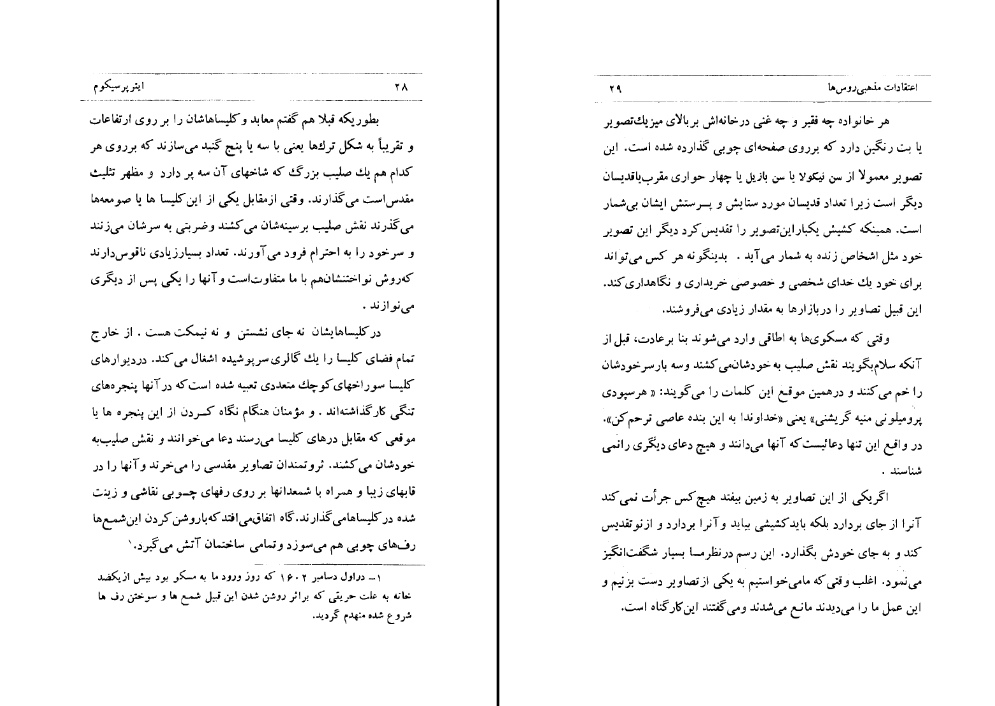 ۲۸ ایتر پرسیکوم
بطوریکه قبلا هم گفتم معابد و کلیساهاشان را بر روی ارتفاعات
و تقریباً به شکل ترك‌ها یعنی با سه یا پنج گنبد می‌سازند که برروی هر
کدام هم یك صلیب بزرگ که شاخهای آن سه پر دارد و مظهر تثلیث
مقدس‌است می‌گذارند. وقتی ازمقابل یکی از این‌کلیسا ها یا صومعه‌ها
می‌گذرند نقش صلیب برسینه‌شان می‌کشند وضربتی به سرشان می‌زنند
و سرخود را به احترام فرود می‌آورند. تعداد بسیارزیادی ناقوس‌دارند
که‌روش نواختنشان‌هم با ما متفاوت‌است وآنها را یکی پس از دیگری
می‌نوازند .
درکلیساهایشان نه جای نشستن و نه نیمکت هست . از خارج
تمام فضای کلیسا را یك گالری سرپوشیده اشغال می‌کند. دردیوارهای
کلیسا سوراخهای‌کوچك متعددی تعبیه شده است‌که در آنها پنجره‌های
تنگی کارگذاشته‌اند . و مؤمنان هنگام نگاه کردن از این پنجره ها یا
موقعی که مقابل درهای کلیسا می‌رسند دعا می‌خوانند و نقش صلیب‌به
خودشان می‌کشند. ثروتمندان تصاویر مقدسی را می‌خرند وآنها را در
قابهای زیبا و همراه با شمعدانها بر روی رفهای چوبی نقاشی و زینت
شده درکلیساهامی‌گذارند.گاه اتفاق‌می‌افتدکه‌باروشن‌کردن این‌شمع‌ها
رف‌های چوبی هم می‌سوزد وتمامی ساختمان آتش می‌گیرد.۱
۱- دراول دسامبر ۱۶۰۲ که روز ورود ما به مسکو بود بیش ازیکصد
خانه به علت حریقی که براثر روشن شدن این قبیل شمع ها و سوختن رف ها
شروع شده منهدم گردید.
اعتقادات مذهبی‌روس‌ها ۲۹
هر خانواده چه فقیر و چه غنی درخانه‌اش بربالای میزیك‌تصویر
یا بت رنگین دارد که برروی صفحه‌ای چوبی گذارده شده است. این
تصویر معمولا از سن نیکولا یا سن بازیل یا چهار حواری مقرب‌یاقدیسان
دیگر است زیرا تعداد قدیسان مورد ستایش و پرستش ایشان بی‌شمار
است. همینکه کشیش یکباراین‌تصویر را تقدیس‌کرد دیگر این تصویر
خود مثل اشخاص زنده به شمار می‌آید . بدینگونه هر کس می‌تواند
برای خود یك خدای شخصی و خصوصی خریداری و نگاهداری‌کند.
این قبیل تصاویر را دربازارها به مقدار زیادی می‌فروشند.
وقتی که مسکوی‌ها به اطاقی وارد می‌شوند بنا برعادت، قبل از
آنکه سلام‌بگویند نقش صلیب به خودشان‌می‌کشند وسه بارسرخودشان
را خم می‌کنند و درهمین موقع این کلمات را می‌گویند: « هرسپودی
پرومیلونی منیه گریشنی» یعنی «خداوندا به این بنده عاصی ترحم‌کن».
در واقع این تنها دعائیست‌که آنها می‌دانند و هیچ دعای دیگری رانمی
شناسند .
اگریکی از این تصاویر به زمین بیفتد هیچ‌کس جرأت نمی‌کند
آنرا از جای بردارد بلکه بایدکشیشی بیاید وآنرا بردارد و ازنوتقدیس
کند و به جای خودش بگذارد. این رسم درنظرما بسیار شگفت‌انگیز
می‌نمود. اغلب وقتی‌که مامی‌خواستیم به یکی ازتصاویر دست بزنیم و
این عمل ما را می‌دیدند مانع می‌شدند ومی‌گفتند این‌کارگناه است.